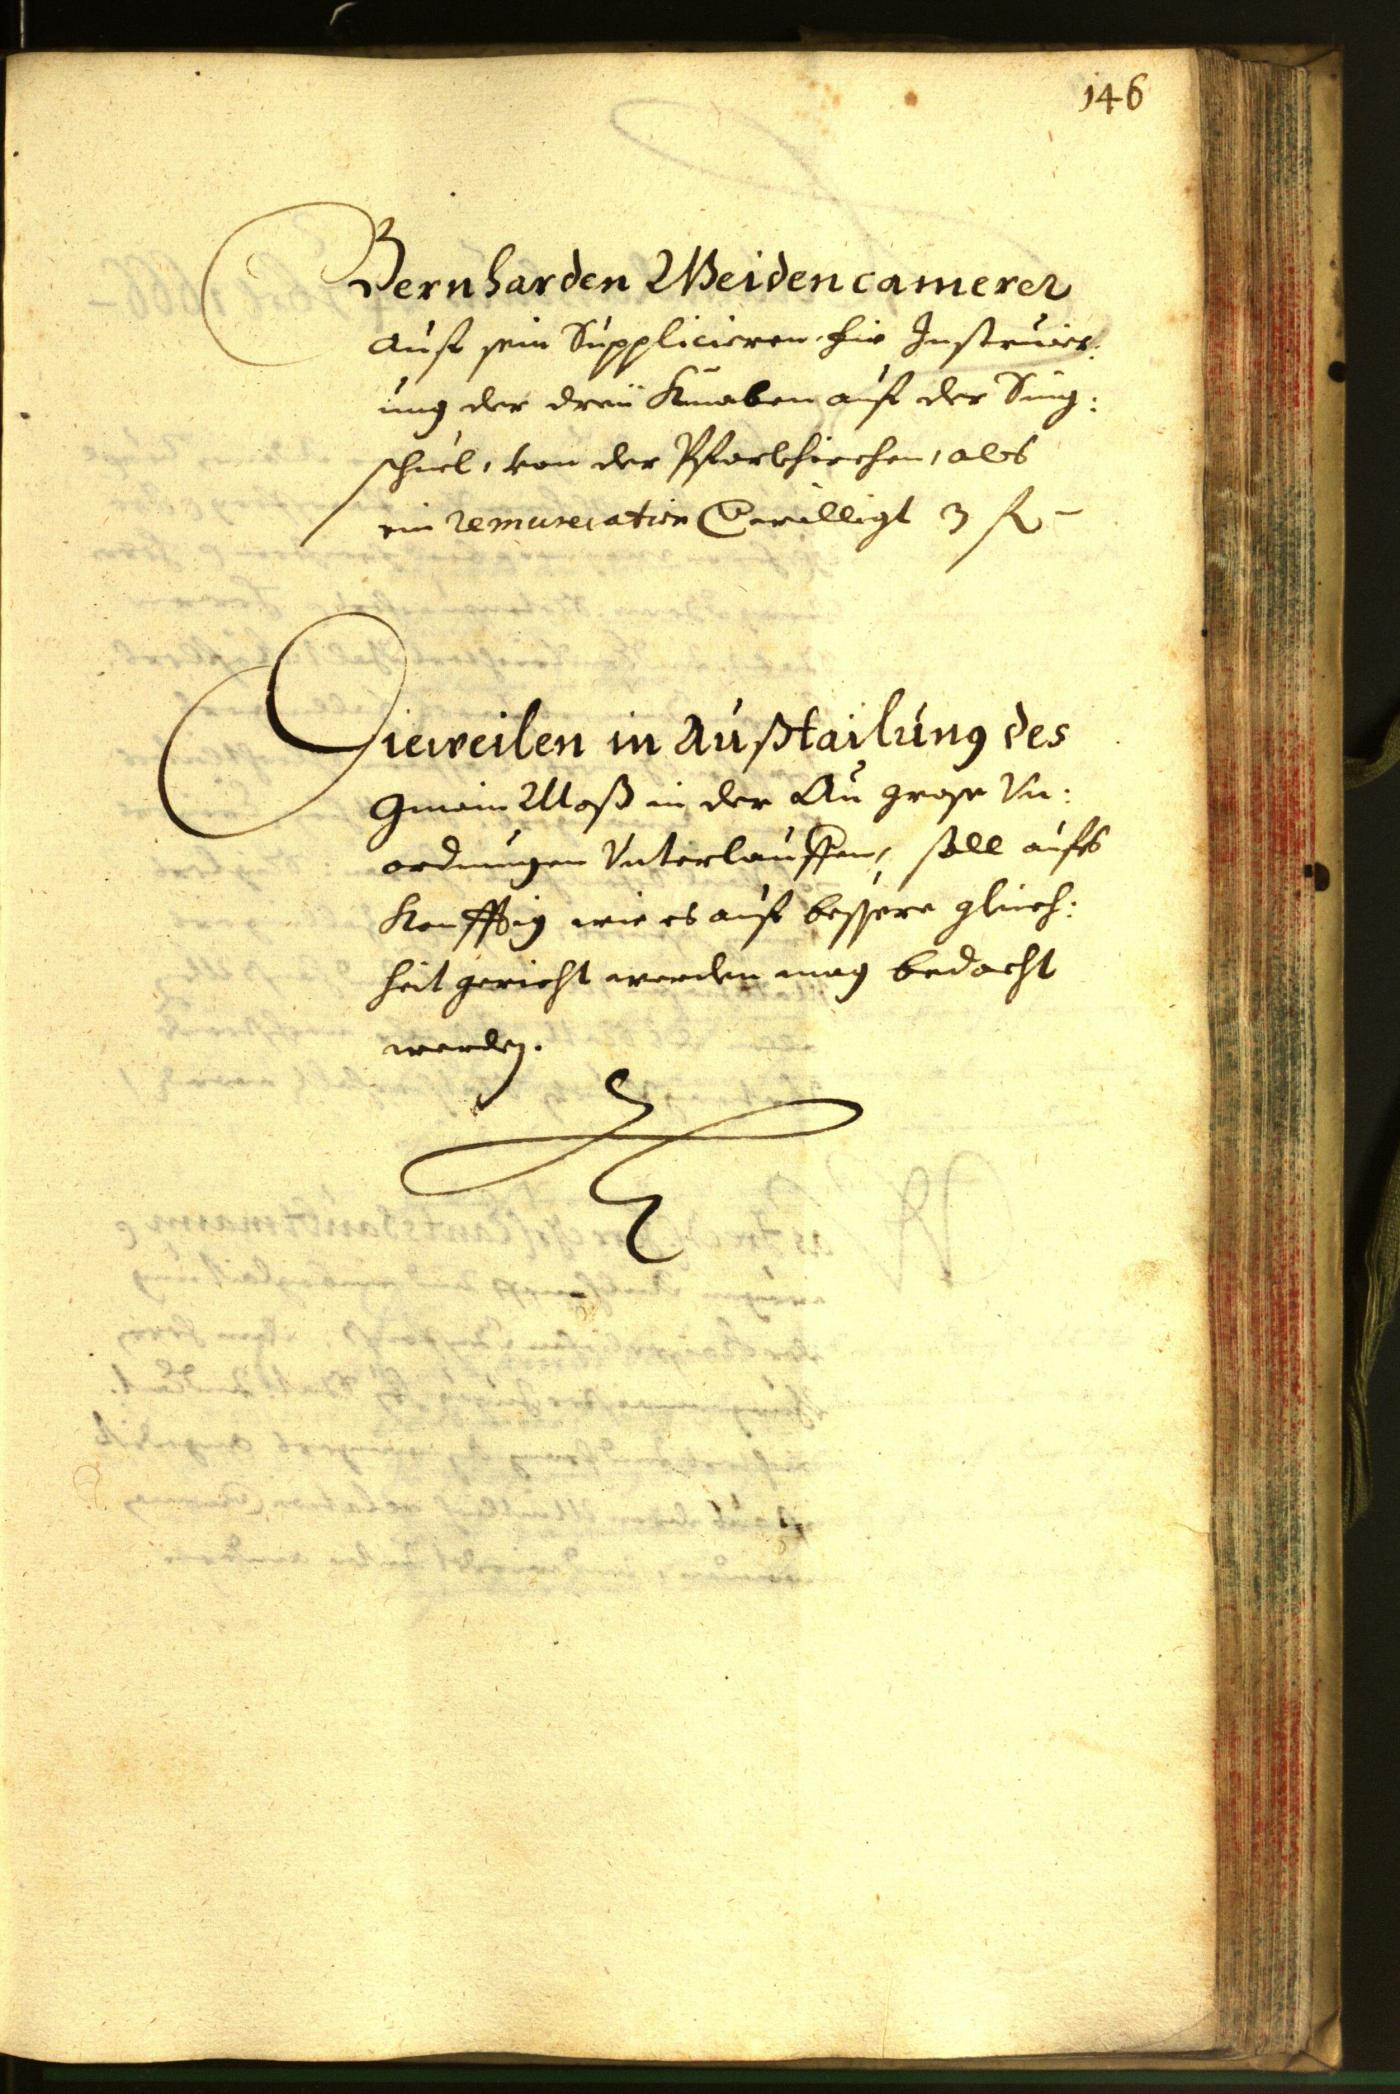 146
Bernharden Weidencamerer
auf sein Supplicieren fir Instruier:
ung der dreÿ Knaben auf der Sing:
schuel, von der Pfarkhirchen, als
ein remuneration Bewilligt 3 fl –
Dieweilen in Außtailung des
Gmain Moß in der Au grosse Un:
ordnungen Unterlauffen, soll aufs
Konfftig wie es auf bessere gleich:
heit gericht werden mag bedacht
werden.